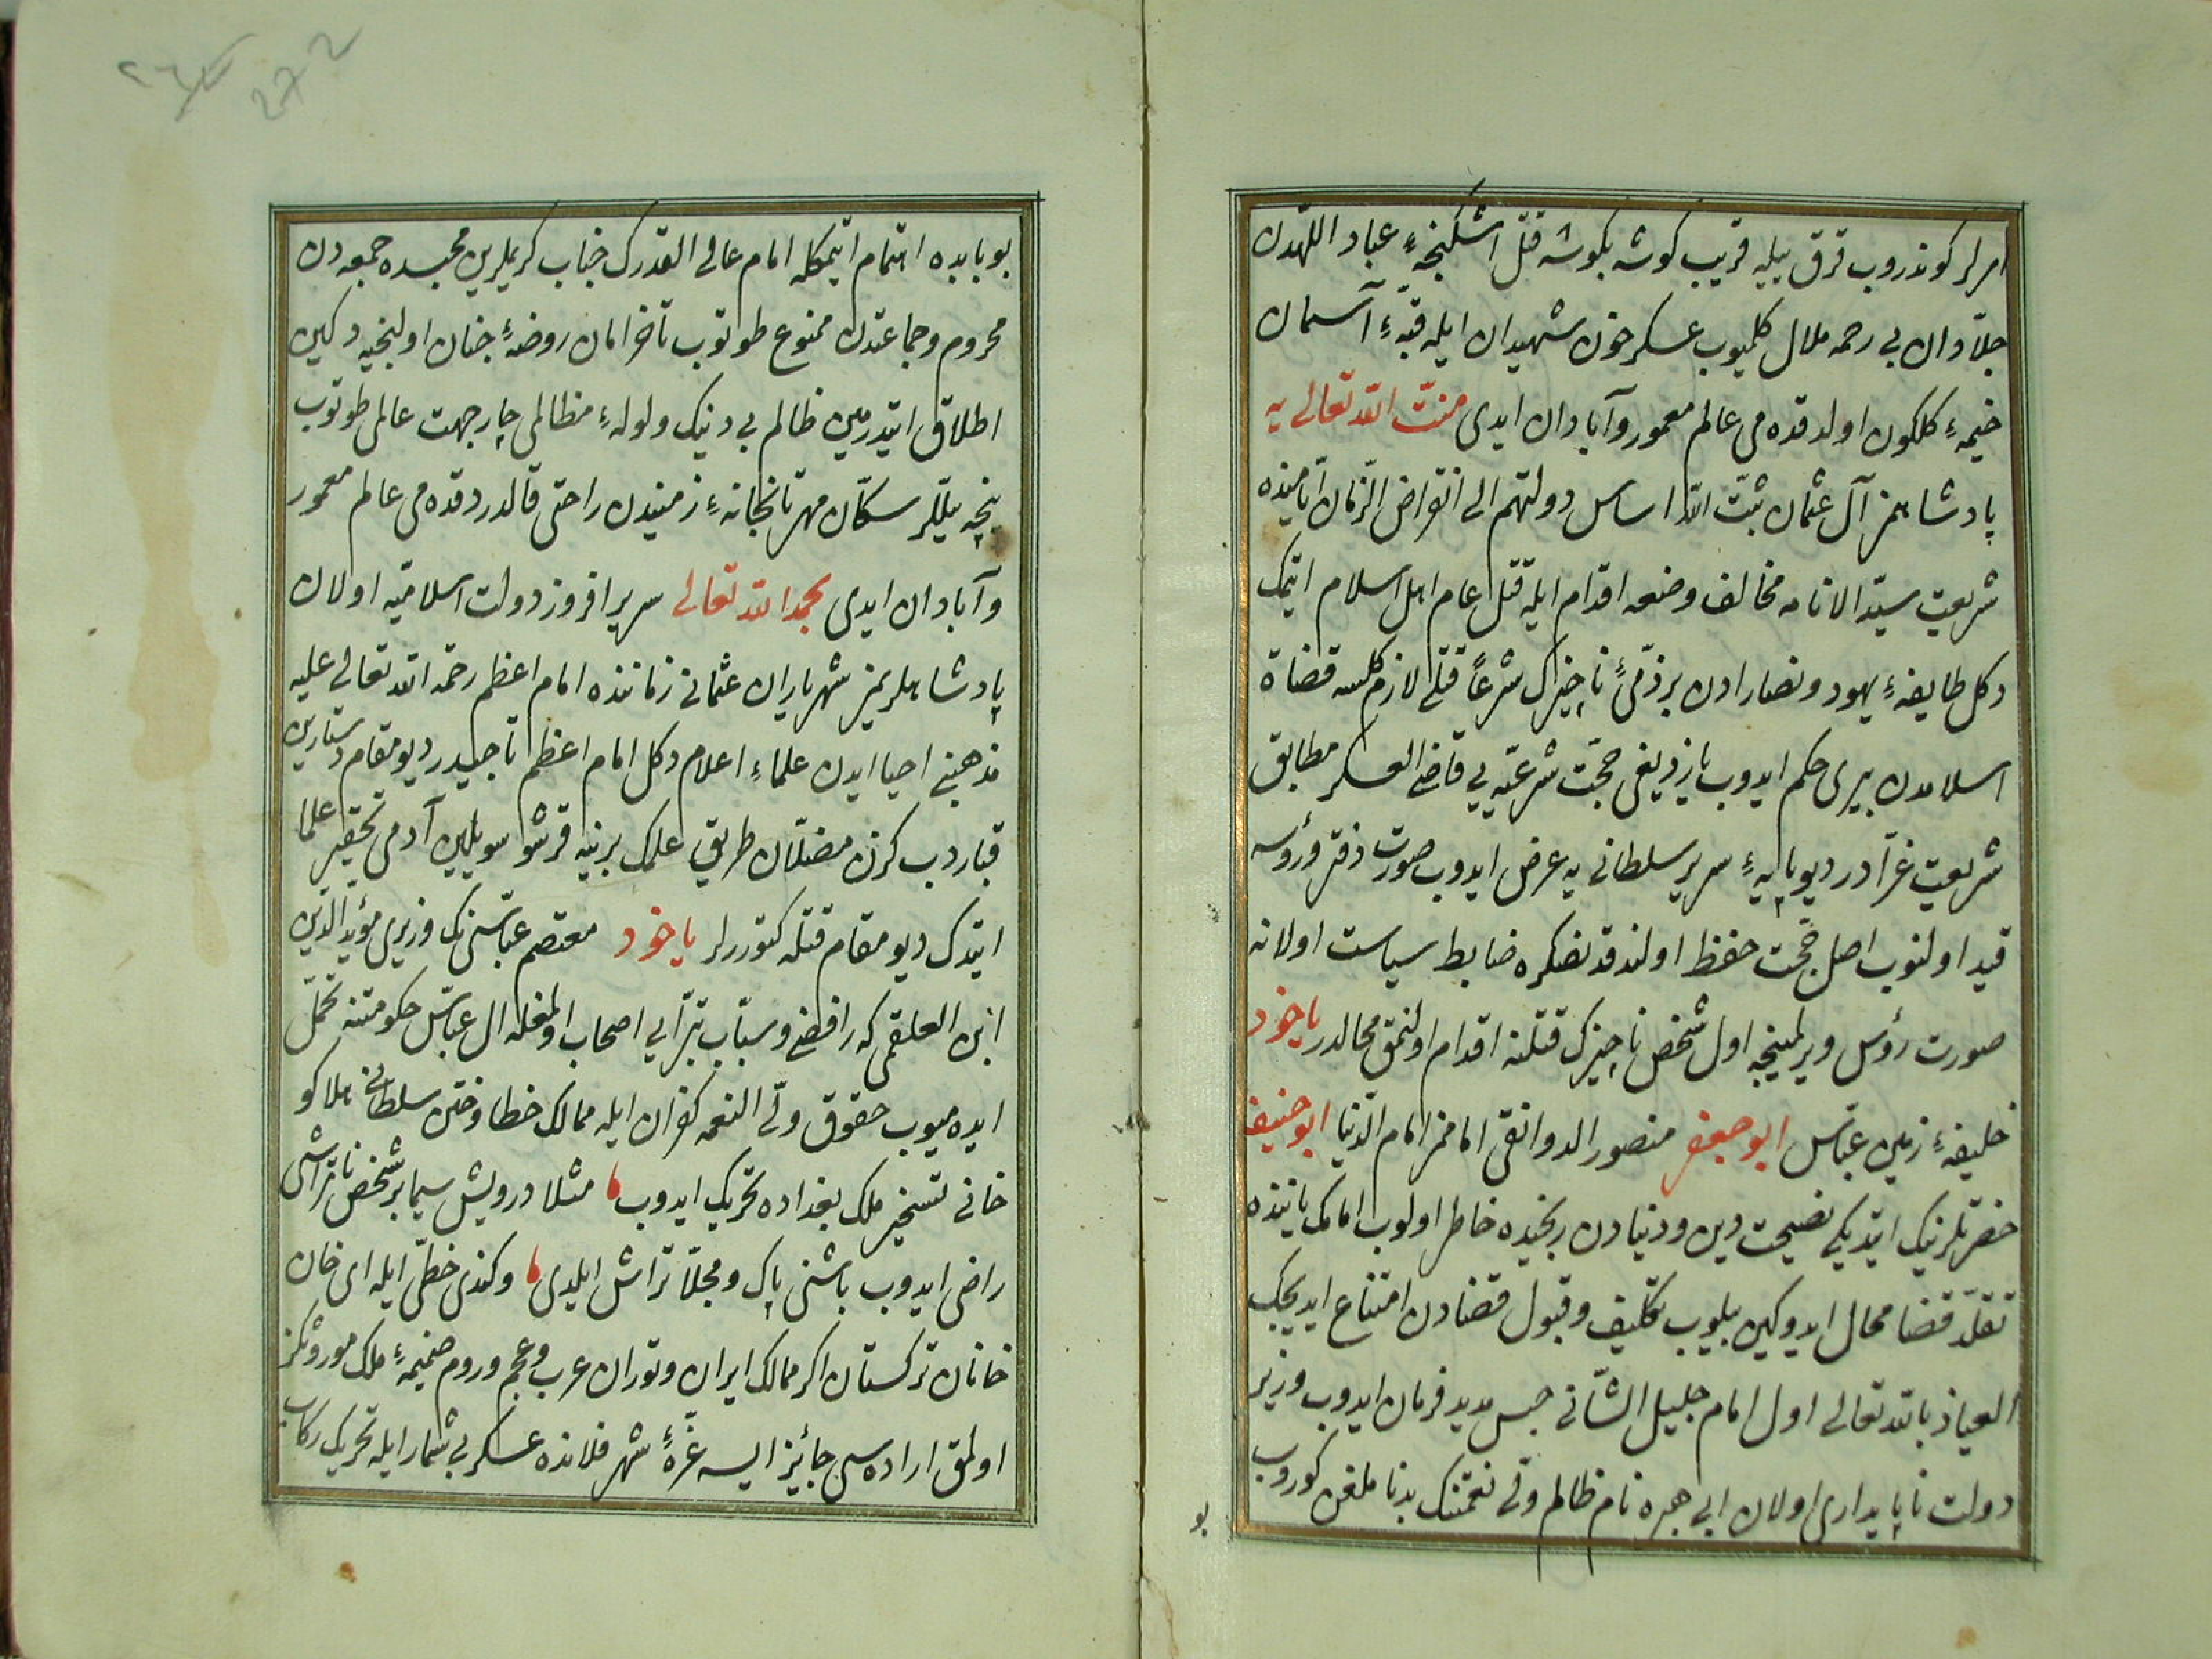 امرلر كوندروب قرق ييله قريب كوشه بكوشه قتل اشكنجهٔ عباد اللهدن
جلادان بى رحمه ملال كلميوب عسكر خون شهيدان ايله قبهٔ آسمان
خيمهٔ كلكون اولدقده مى عالم معمور وآبادان ايدى منت الله تعالى يه
پادشاهمز آل عثمان ثبت الله اساس دولتهم الى انقراض الزمان ايامنده
شريعت سيد الانامه مخالف وضعه اقدام ايله قتل عام اهل اسلام ايتمك
دكل طايفهٔ يهود ونصارادن بر ذمئ ناچيزك شرعا قتلى لازم كلسه قضاة
اسلامدن بيرى حكم ايدوب يازديغى حجت شرعيه يى قاضى العسكر مطابق
شريعت غرادر ديو پايهٔ سرير سلطانى يه عرض ايدوب صورت دفتر ورؤسه
قيد اولنوب اصل حجت حفظ اولندقدنصكره ضابط سياست اولانه
صورت رؤس ويرلمينجه اول شخص ناچيزك قتلنه اقدام اولنمق محالدر ياخود
خليفهٔ زمين عباس ابو جعفر منصور الدوانقى امامز امام الدنيا ابو حنيفه
حضرتلرينك ايتديكى نصيحت دين ودنيادن رنجيده خاطر اولوب امامك ياننده
تقلد قضا محال ايدوكين بيلوب تكليف وقبول قضادن امتناع ايديجك
العياذ بالله تعالى اول امام جليل الشانى حبس مديد فرمان ايدوب وزير
دولت ناپايدارى اولان ابى هبره نام ظالم ولى نعمتنك بدنا ملغن كوروب
بو
بو بابده اهتمام ايتمكله امام عالى القدرك جناب كريملرين محبسده جمعه دن
محروم وجماعتدن ممنوع طوتوب تا خرامان روضهٔ جنان اولنجيه دكين
اطلاق ايتدرمين ظالم بى دينك ولولهٔ مظالمى چار جهت عالمى طوتوب
نيجه ييللر سكان مهرتابخانهٔ زمنيدن راحتى قالدردقده مى عالم معمور
وآبادان ايدى بحمد الله تعالى سرير افروز دولت اسلاميه اولان
پادشاهلريمز شهرياران عثمانى زماننده امام اعظم رحمه الله تعالى عليه
مذهبنى احيا ايدن علماء اعلام دكل امام اعظم تاجيدر ديو مقام دستارين
قباردب كزن مضتلان طريق علمك برينه قرشو سويلين آدمى تحقير علما
ايتدك ديو مقام قتله كتوررلر ياخود معتصم عباسى نك وزيرى مؤيد الدين
ابن العلقمى كه رافضى وسباب تبرايى اصحاب اولمغله ال عباس حكومتنه تحمل
ايده ميوب حقوق ولى النعمه كفران ايله ممالك خطا وختن سلطانى هلاكو
خانى تسخير ملك بغداده تحريك ايدوب مثلا درويش سيما بر شخص ناتراشى
راضى ايدوب باشنى پاك ومجلا تراش ايلدى وكندى خطى ايله اى خان
خانان تركستان اكر ممالك ايران وتوران عرب وعجم وروم ضميمهٔ ملك موروثكز
اولمق اراده سى جائيز ايسه غرهٔ شهر فلانده عسكر بى شمار ايله تحريك ركاب